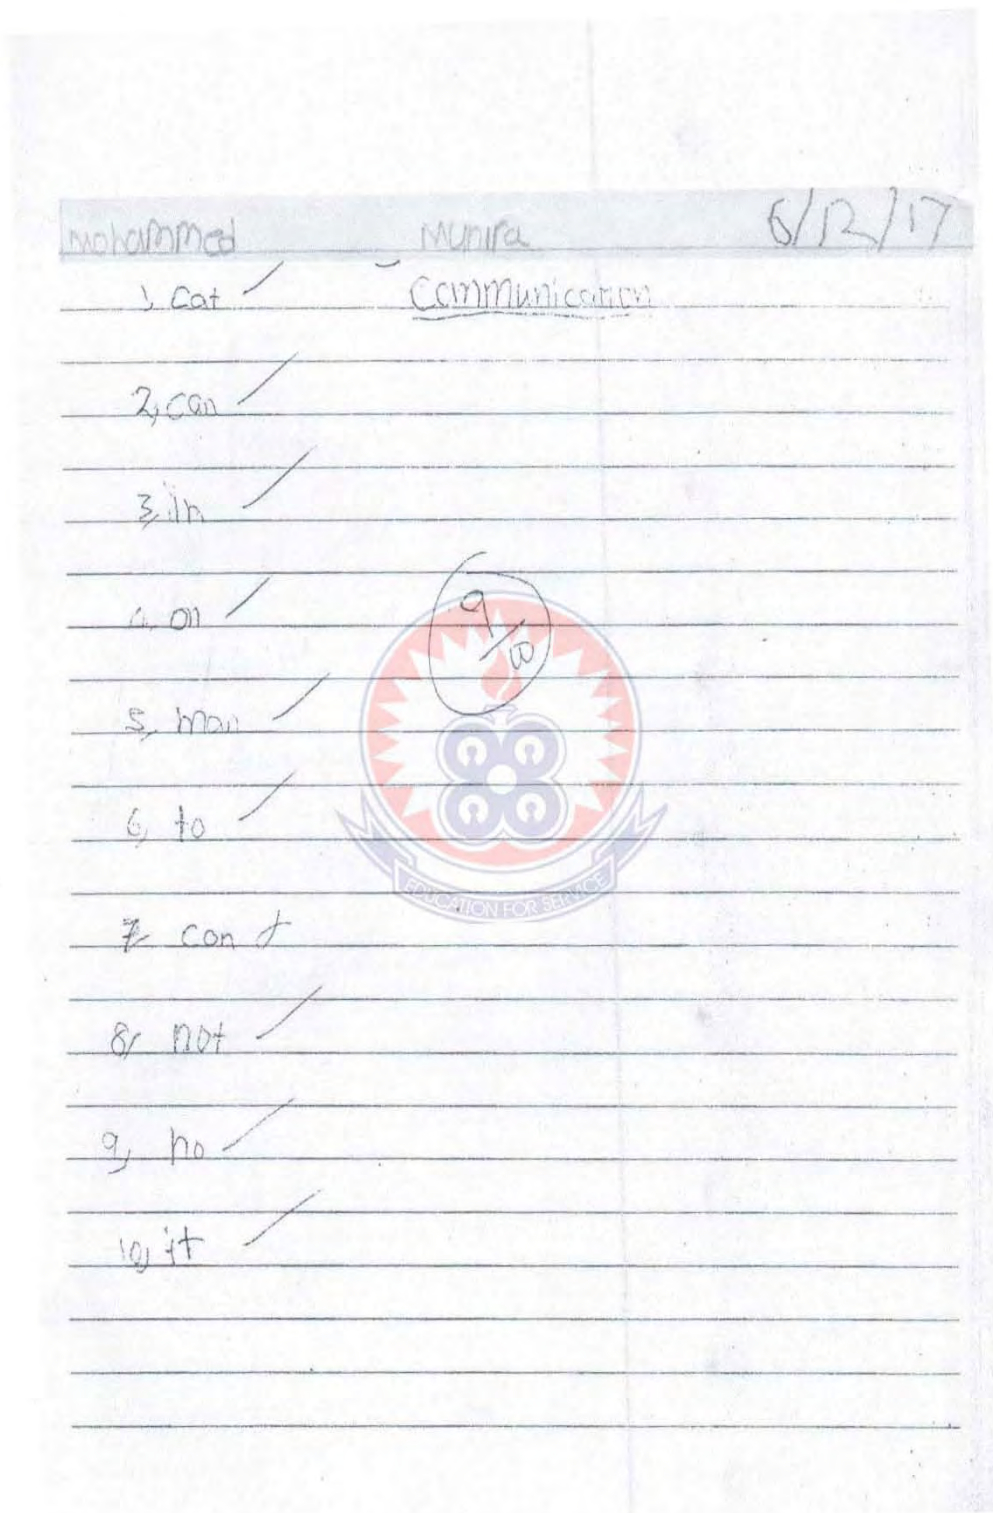 Mohammed Munira 6/12/17
1, Cat
Communication
2, can
3, in
4, on
9/10
5, man
6, to
EDUCATION FOR SERVICE
7, con
8, not
9, no
10, it